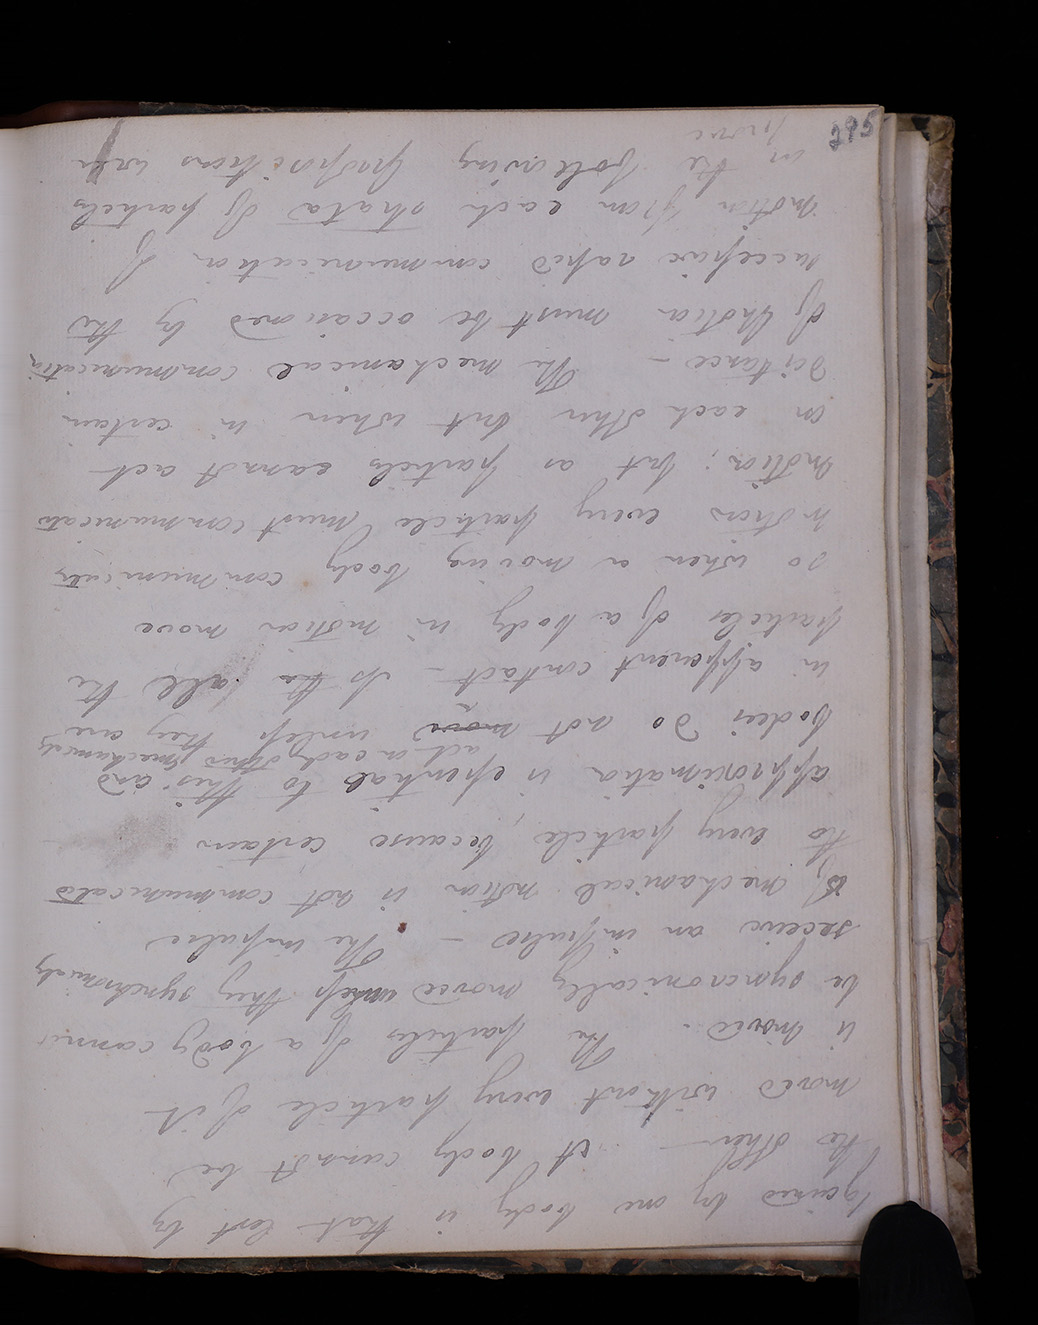 gained by one body is that lost by
the other — A body cannot be
moved without every particle of it
is moved. The particles of a body cannot
be syncronically moved unless they synchronously
receive an impulse — The impulse
of mechanical motion is not communicated
to every particle, because certain
approximation is essential to this and
act on each other mechanically
bodies do not move unless they are
in apparent contact — As the all the
particles of a body in motion move
so when a moving body communicates
motion every particle must communicate
motion; but as particles cannot act
on each other but when in certain
distance — The mechanical communication
of Motion must be occasioned by the
successive rapid communication of
motion from each strata of particles
in the following propositions will
prove
295